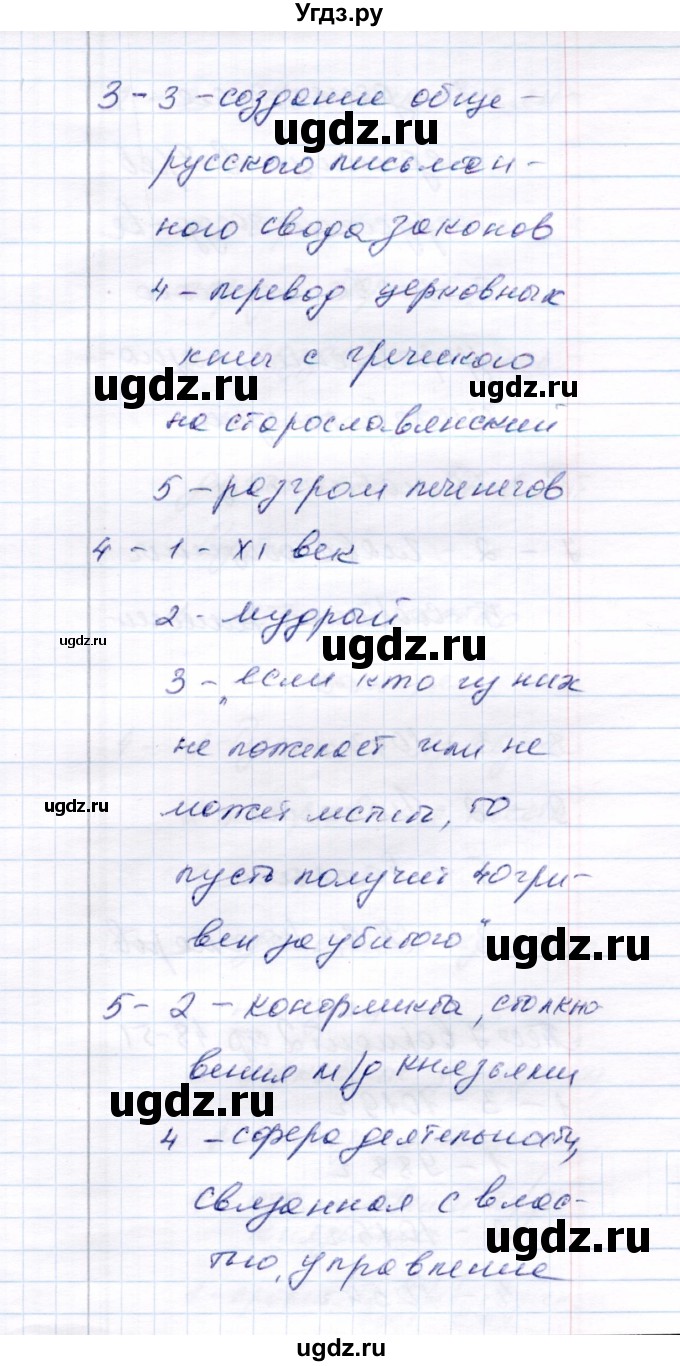 Угдз.ру
3 - 3 - создание обще -
ugdz.ru
русского письмен -
ного свода законов
4 - перевод церковных
книг с греческого
ugdz.ru
ugdz.ru
на старославянский
5 - разгром печенегов
4 - 1 - XI век
2 - мудрый
ugdz.ru
ugdz.ru
3 - "если кто из них
не пожелает или не
ugdz.ru
может мстить, то
пусть получит 40 гри-
вен за убитого"
ugdz.ru
5 - 2 - конфликта, столкно
вения м/д князьями
ugdz.ru
4 - сфера деятельности,
связанная с влас-
ugdz.ru
тью, управление
ugdz.ru